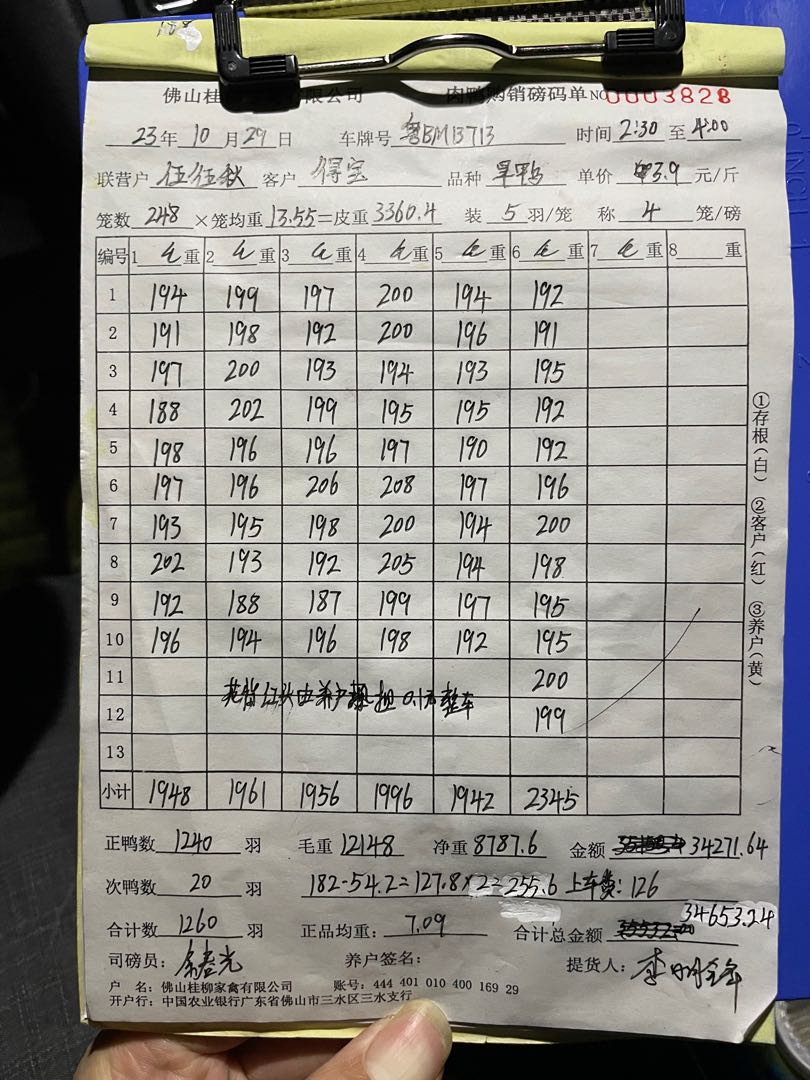 佛山桂 限公司 肉鸭购销磅码单 NO 0003828
23年10月29日 车牌号 粤BM13713 时间2:30至4:00
联营户 伍伍秋 客户 得宝 品种 旱鸭 单价 3.9 元/斤
笼数 248 ×笼均重 13.55=皮重 3360.4 装 5 羽/笼 称 4 笼/磅
编号 1 毛重 2 毛重 3 毛重 4 毛重 5 毛重 6 毛重 7 毛重 8 重
1 194 199 197 200 194 192
2 191 198 192 200 196 191
3 197 200 193 194 193 195
4 188 202 199 195 195 192
5 198 196 196 197 190 192
6 197 196 206 208 197 196
7 193 195 198 200 194 200
8 202 193 192 205 194 198
9 192 188 187 199 197 195
10 196 194 196 198 192 195
11 200
红头由养户 0.1元整车
12 199
13
小计 1948 1961 1956 1996 1942 2345
正鸭数 1240 羽 毛重 12148 净重 8787.6 金额 34271.64
次鸭数 20 羽 182-54.2=127.8×2=255.6 上车费:126
合计数 1260 羽 正品均重: 7.09 合计总金额 34653.24
司磅员: 养户签名: 提货人:
户 名:佛山桂柳家禽有限公司 账号:444 401 010 400 169 29
开户行:中国农业银行广东省佛山市三水区三水支行
①存根(白) ②客户(红) ③养户(黄)